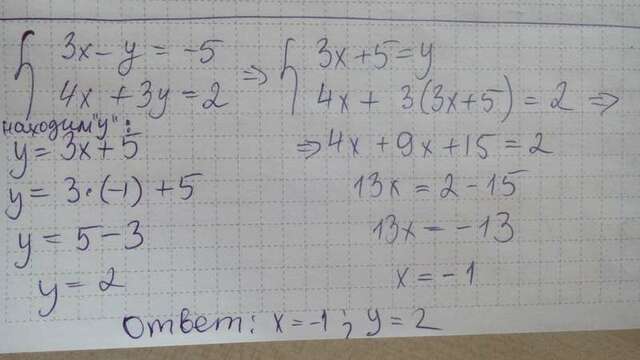 3x - y = -5
4x + 3y = 2
=>
3x + 5 = y
4x + 3(3x + 5) = 2 =>
=> 4x + 9x + 15 = 2
13x = 2 - 15
13x = -13
x = -1
находим "y":
y = 3x + 5
y = 3·(-1) + 5
y = 5 - 3
y = 2
Ответ: x = -1; y = 2